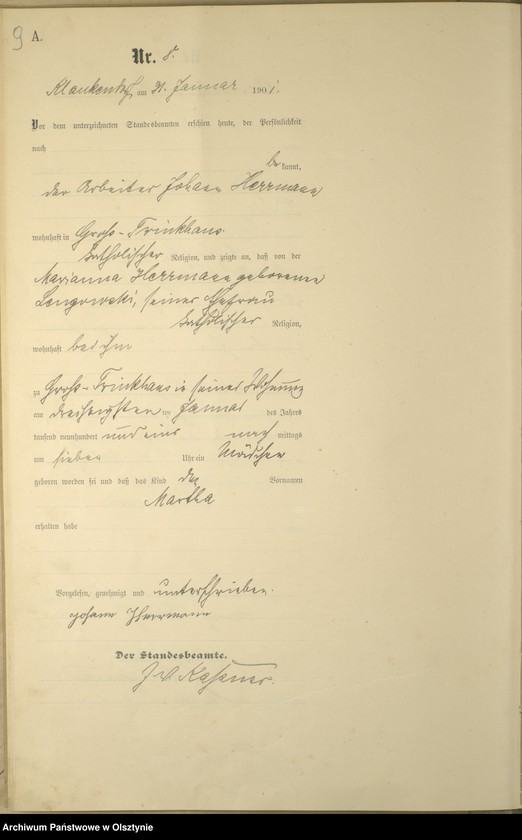 9 A.
Nr. 8.
Klaukendorf, am 31. Januar 1901.
Vor dem unterzeichneten Standesbeamten erschien heute, der Persönlichkeit
nach
bekannt,
der Arbeiter Johann Herrmann
wohnhaft in Groß-Trinkhaus
katholischer Religion, und zeigte an, daß von der
Marianna Herrmann geborenen
Lengowski, seiner Ehefrau
katholischer Religion,
wohnhaft bei ihm
zu Groß-Trinkhaus in seiner Wohnung
am dreißigsten ten Januar des Jahres
tausend neunhundert und eins nach mittags
um sieben Uhr ein Mädchen
geboren worden sei und daß das Kind den Vornamen
Martha
erhalten habe
Vorgelesen, genehmigt und unterschrieben.
Johann Herrmann
Der Standesbeamte.
J V
Archiwum Państwowe w Olsztynie